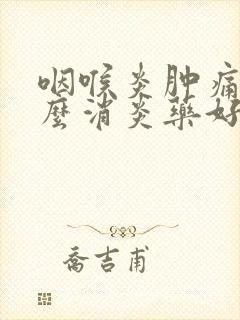 咽喉炎肿痛
麼消炎藥好
喬吉甫